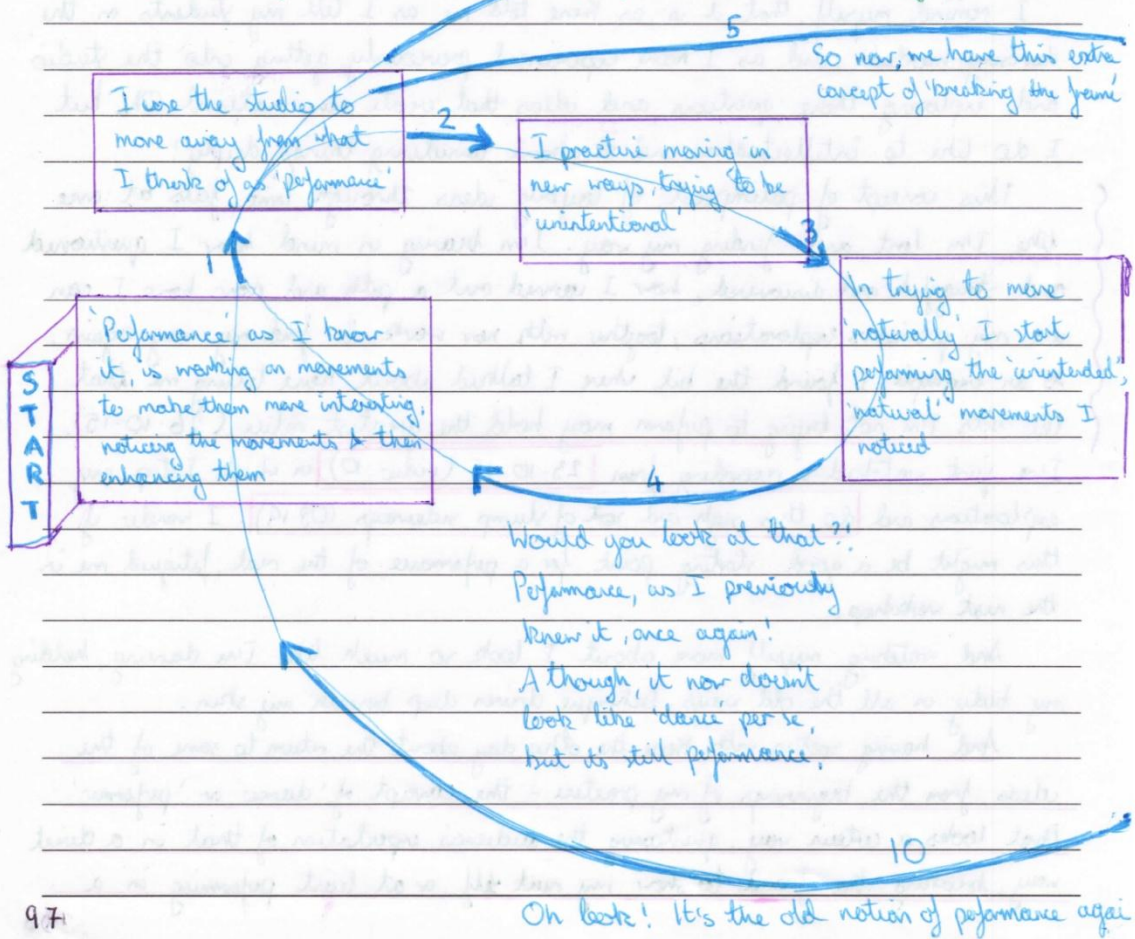 5
So now, we have this extra
concept of 'breaking the frame'
I use the studio to
move away from what
I think of as 'performance'
2
I practice moving in
new ways, trying to be
'unintentional'
3
In trying to move
'naturally' I start
performing the 'unintended',
'natural' movements I
noticed
1
START
'Performance' as I know
it, is working on movements
to make them more interesting,
noticing the movements & then
enhancing them
4
Would you look at that?!
Peformance, as I previously
knew it, once again!
Although, it now doesn't
look like 'dance' per se
but its still peformance!
10
97
Oh look! It's the old notion of peformance agai